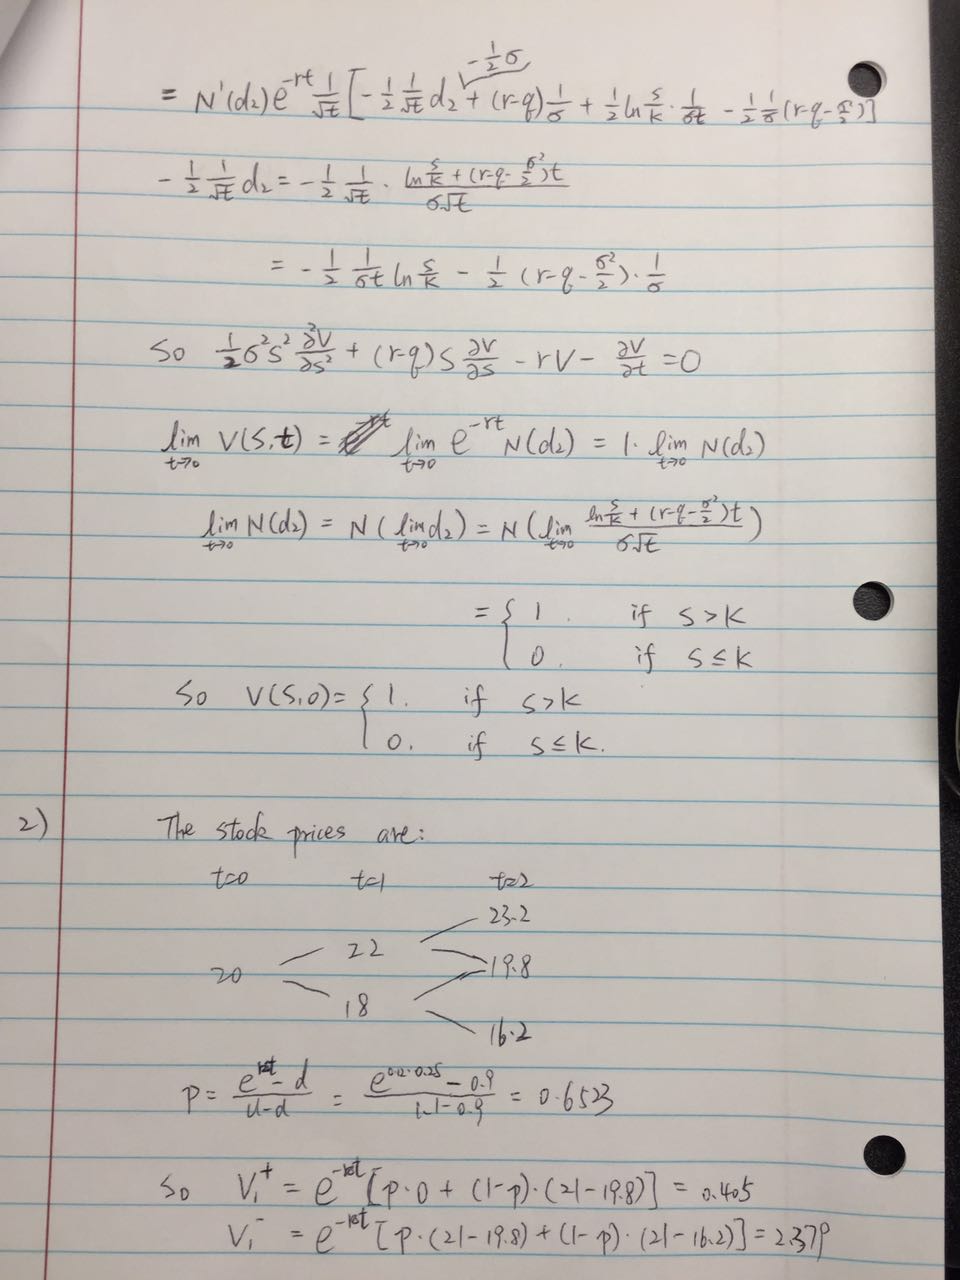 = N'(d₂)e^{-rt} 1/√t [-1/2 1/√t d₂ + (r-q)1/σ -1/2σ + 1/2 ln S/K · 1/σt - 1/2 1/σ (r-q-σ²/2)]
-1/2 1/√t d₂ = -1/2 1/√t · (ln S/K + (r-q-σ²/2)t)/(σ√t)
= -1/2 1/σt ln S/K - 1/2 (r-q-σ²/2)·1/σ
So 1/2 σ²S² ∂²V/∂S² + (r-q)S ∂V/∂S - rV - ∂V/∂t = 0
lim_{t→0} V(S,t) = lim_{t→0} e^{-rt} N(d₂) = 1· lim_{t→0} N(d₂)
lim_{t→0} N(d₂) = N(lim_{t→0} d₂) = N(lim_{t→0} (ln S/K + (r-q-σ²/2)t)/(σ√t))
= { 1. if S>K
0. if S≤K
So V(S,0) = { 1. if S>K
0. if S≤K.
2) The stock prices are:
t=0 t=1 t=2
23.2
22
19.8
20
18
16.2
P = (e^{rδt} - d)/(u-d) = (e^{0.12·0.25} - 0.9)/(1.1-0.9) = 0.6523
So V₁⁺ = e^{-rδt} [p·0 + (1-p)·(21-19.8)] = 0.405
V₁⁻ = e^{-rδt} [p·(21-19.8) + (1-p)·(21-16.2)] = 2.379